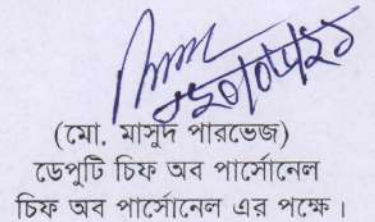 (মো. মাসুদ পারভেজ)
ডেপুটি চিফ অব পার্সোনেল
চিফ অব পার্সোনেল এর পক্ষে।